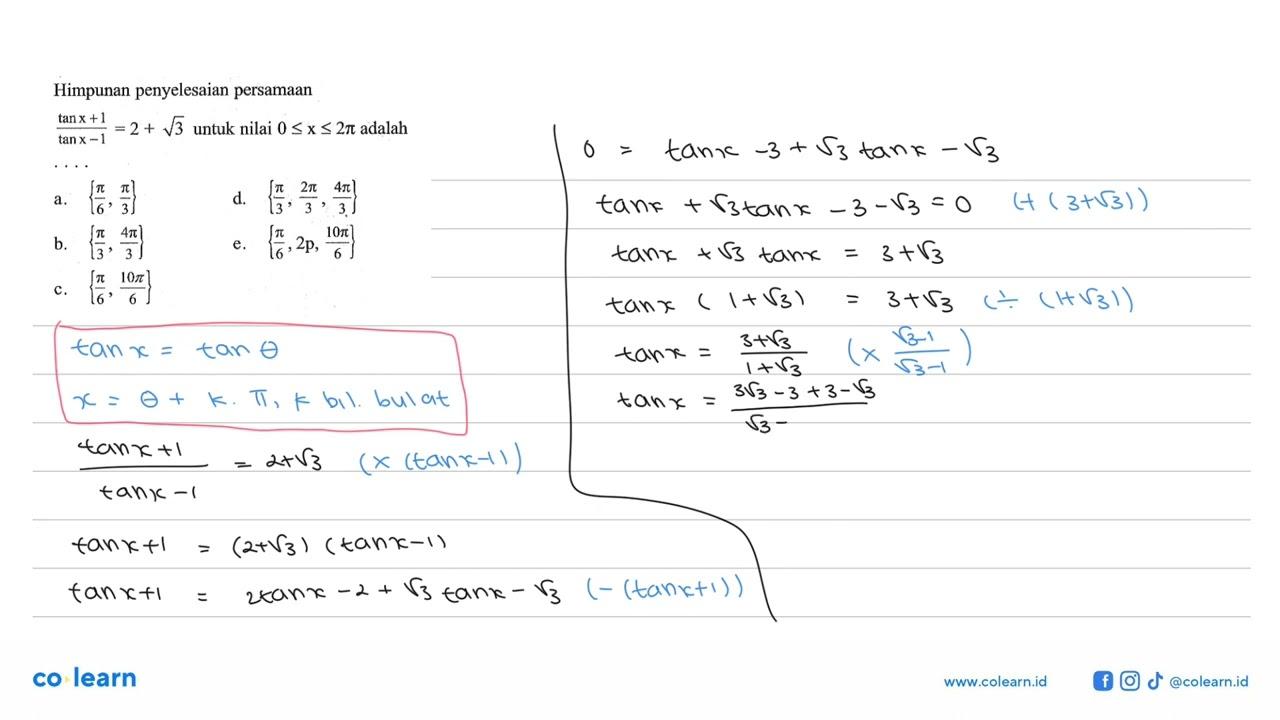 Himpunan penyelesaian persamaan
tan x + 1 / tan x − 1 = 2 + √3 untuk nilai 0 ≤ x ≤ 2π adalah
....
a. {π/6, π/3}
b. {π/3, 4π/3}
c. {π/6, 10π/6}
d. {π/3, 2π/3, 4π/3}
e. {π/6, 2p, 10π/6}
tan x = tan θ
x = θ + k. π, k bil. bulat
tanx+1 / tanx−1 = 2+√3 (× (tanx−1))
tanx+1 = (2+√3) (tanx−1)
tanx+1 = 2tanx − 2 + √3 tanx − √3 (−(tanx+1))
0 = tanx − 3 + √3 tanx − √3
tanx + √3 tanx − 3 − √3 = 0 (+ (3+√3))
tanx + √3 tanx = 3+√3
tanx (1+√3) = 3+√3 (÷ (1+√3))
tanx = 3+√3 / 1+√3 (× √3−1 / √3−1)
tanx = 3√3 − 3 + 3 − √3 / √3 −
co learn
www.colearn.id
@colearn.id